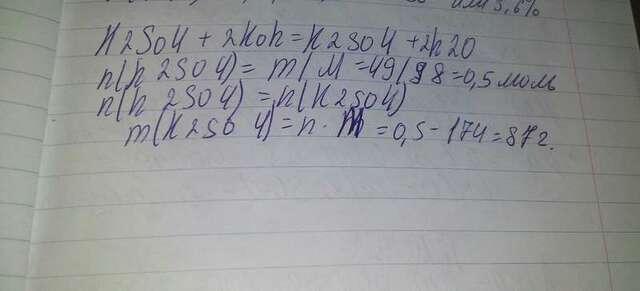 или 3,6%
H2SO4 + 2KOh = K2SO4 + 2h2O
n(h2SO4) = m/M = 49/98 = 0,5 моль
n(h2SO4) = n(K2SO4)
m(K2SO4) = n · M = 0,5 - 174 = 87г.